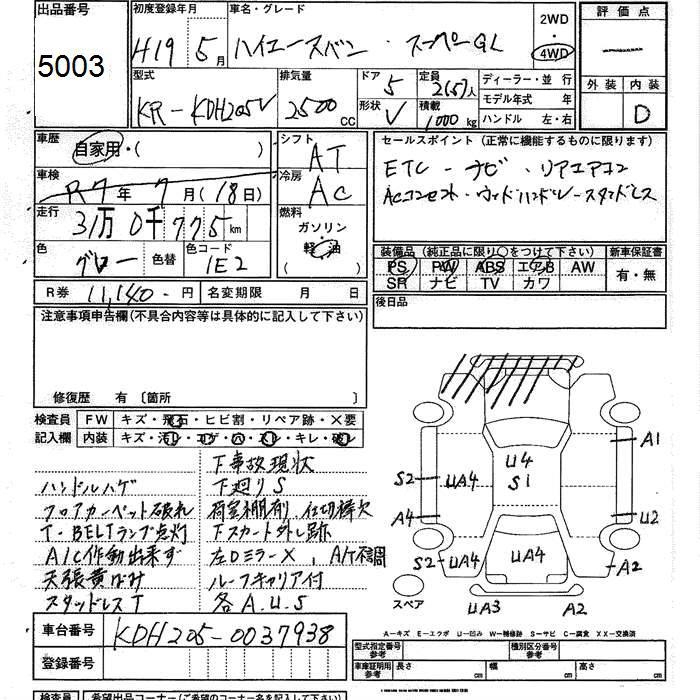 出品番号
5003
初度登録年月
H19 5月
車名・グレード
ハイエースバン ・ スーパーGL
2WD
・
4WD
評価点
外装 内装
D
型式
KR-KDH205V
排気量
2500 CC
ドア
5
形状
V
定員
2(5)人
積載
1000 kg
ディーラー・並行
モデル年式 年
ハンドル 左・右
車歴
自家用・( )
車検
R7年 7月 (18日)
走行
31万0千775 km
色
グレー
色替
色コード
1E2
シフト
AT
冷房
AC
燃料
ガソリン
・
軽油
( )
セールスポイント (正常に機能するものに限ります)
ETC - ナビ ・ リアエアコン
ACコンセント・ウッドハンドル-スタッドレス
装備品 (純正品に限り○をつけて下さい)
PS PW ABS エアB AW
SR ナビ TV カワ
新車保証書
有・無
R券 11,140-円
名変期限 月 日
後日品
注意事項申告欄(不具合内容等は具体的に記入して下さい)
修復歴 有 〔箇所 〕
検査員
記入欄
FW キズ・飛石・ヒビ割・リペア跡・X要
内装 キズ・汚レ・コゲ・穴・スレ・キレ・破レ
ハンドルハゲ
フロアカーペット破れ
T-BELTランプ点灯
A/C作動出来ず
天張黄ばみ
スタッドレスT
下事故現状
下廻りS
荷室棚有、仕切棒欠
下スカート外し跡
左Dミラー×、A/T不調
ルーフキャリア付
各A.U.S
A1
S2
UA4
U4
S1
A4
U2
S2
UA4
UA4
A2
スペア
UA3
A2
A-キズ E-エクボ U-凹ミ W-補修跡 S-サビ C-腐食 XX-交換済
車台番号 KDH205-0037938
登録番号
型式指定番号
参考
種別区分番号
参考
車庫証明用
参考
長さ cm
幅 cm
高さ cm
検査員
希望出品コーナー(ご希望のコーナー名を記入して下さい)